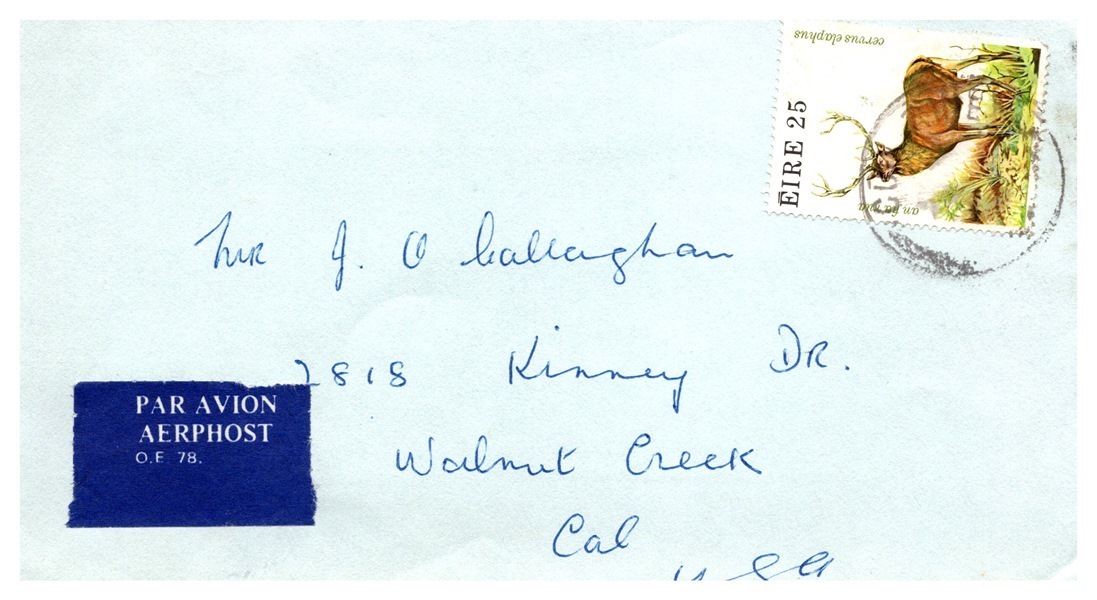 cervus elaphus
ÉIRE 25
an fia rua
Mr J. O Callaghan
2818 Kinney DR.
PAR AVION
AERPHOST
O.E. 78.
Walnut Creek
Cal
USA